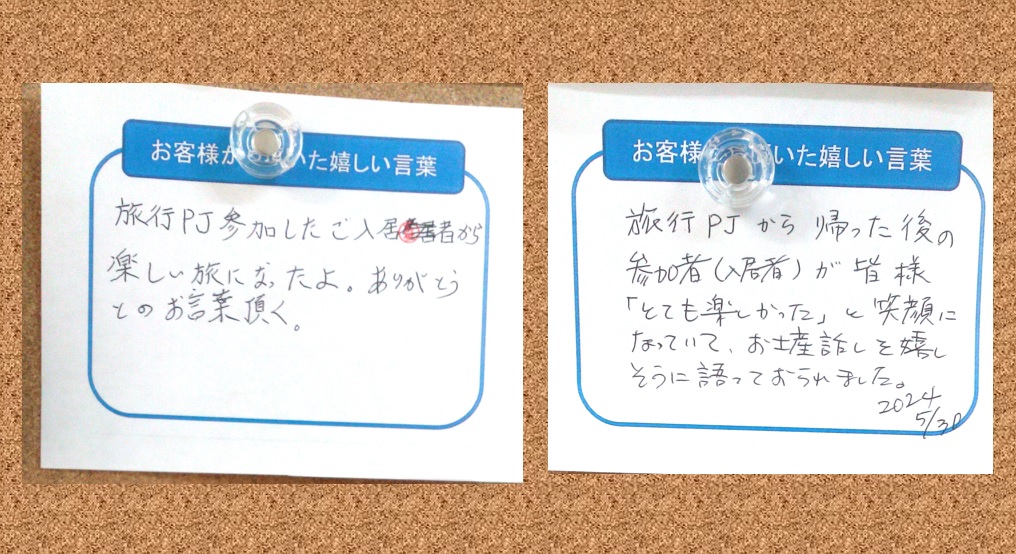 お客様か いた嬉しい言葉
旅行PJ参加したご入居者から
楽しい旅になったよ。ありがとう
とのお言葉頂く。
お客様 いた嬉しい言葉
旅行PJから帰った後の
参加者(入居者)が皆様
「とても楽しかった」と笑顔に
なっていて、お土産話しを嬉し
そうに語っておられました。
2024
5/30